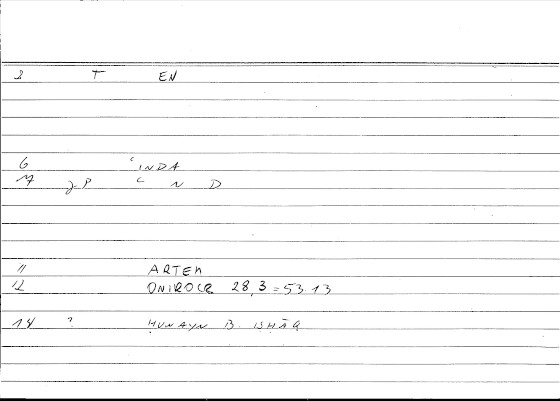 2 T EN
6 ʿINDA
7 gP ʿ N D
11 ARTEM
12 ONIROCR 28,3=53.13
14 ? ḤUNAYN B. ISḤĀQ